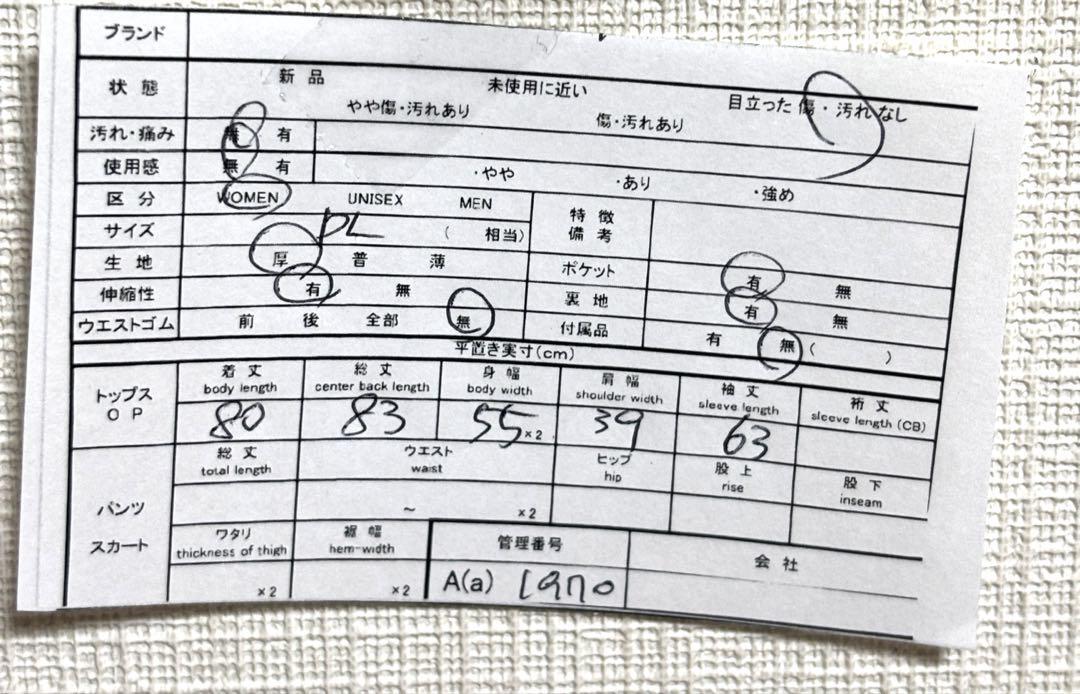 ブランド
状態 新品 未使用に近い 目立った傷・汚れなし
やや傷・汚れあり 傷・汚れあり
汚れ・痛み 無 有
使用感 無 有 ・やや ・あり ・強め
区分 WOMEN UNISEX MEN 特徴
備考
サイズ ( 相当)
生地 厚 普 薄 ポケット 有 無
伸縮性 有 無 裏地 有 無
ウエストゴム 前 後 全部 無 付属品 有 無 ( )
平置き実寸(cm)
トップス
OP
着丈 総丈 身幅 肩幅 袖丈 裄丈
body length center back length body width shoulder width sleeve length sleeve length (CB)
80 83 55×2 39 63
パンツ
スカート
総丈 ウエスト ヒップ 股上 股下
total length waist hip rise inseam
~ ×2
ワタリ 裾幅 管理番号 会社
thickness of thigh hem-width
×2 ×2 A(a) 1970